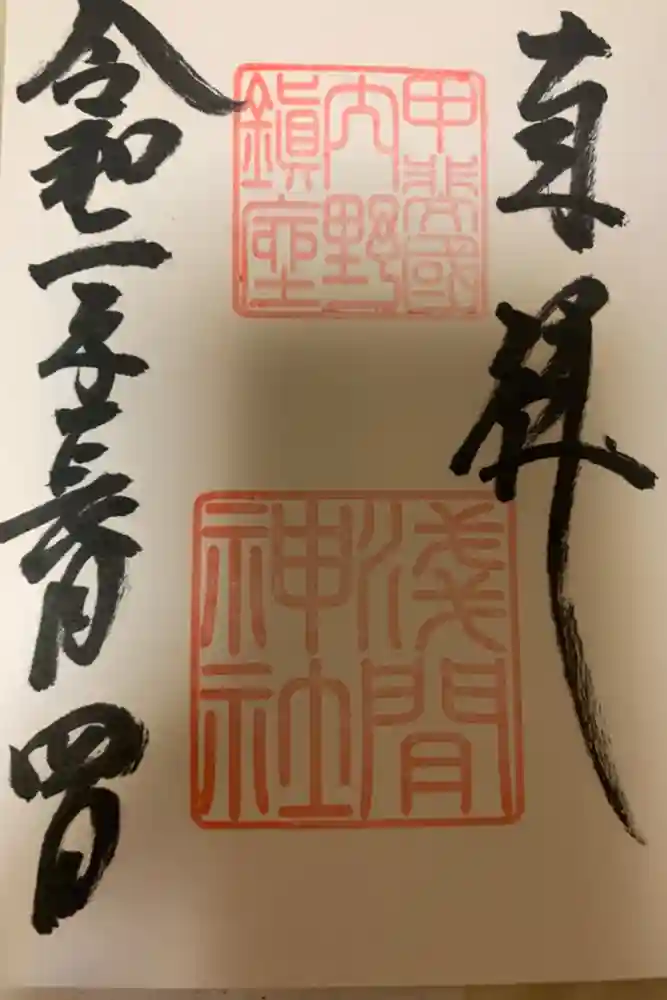 奉拝
甲斐國
内野
鎮座
淺間
神社
令和年月四日